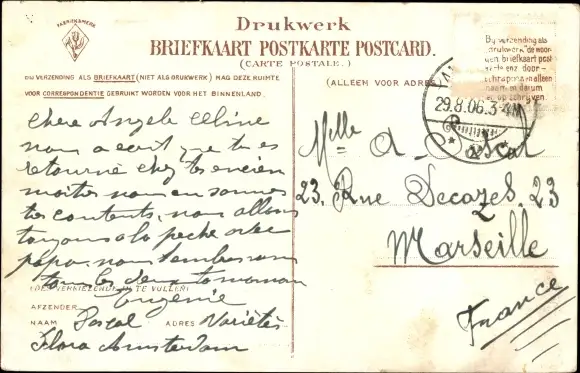 FABRIEKSMERK
Drukwerk
BRIEFKAART POSTKARTE POSTCARD.
(CARTE POSTALE.)
BIJ VERZENDING ALS BRIEFKAART (NIET ALS DRUKWERK) MAG DEZE RUIMTE
VOOR CORRESPONDENTIE GEBRUIKT WORDEN VOOR HET BINNENLAND.
(ALLEEN VOOR ADRES
By verzending als
"drukwerk" de woor-
en briefkaart post
door-
schrapen en alleen
naam en datum
er op schrijven.
29.8.06.3-4N
Chere Angele Celine
nous a ecrit que tu es
retourné chez tes ancien
maitres nous en sommes
tes contents, nous allons
toujours a la peche avec
papa, nous t'embrassons
tous les deux ta maman
(DES VERKIEZENDE IN TE VULLEN)
Eugenie
AFZENDER
NAAM Pascal ADRES Variétés
Flora Amsterdam
Mlle A. Pascal
23. Rue Decazes. 23
Marseille
France